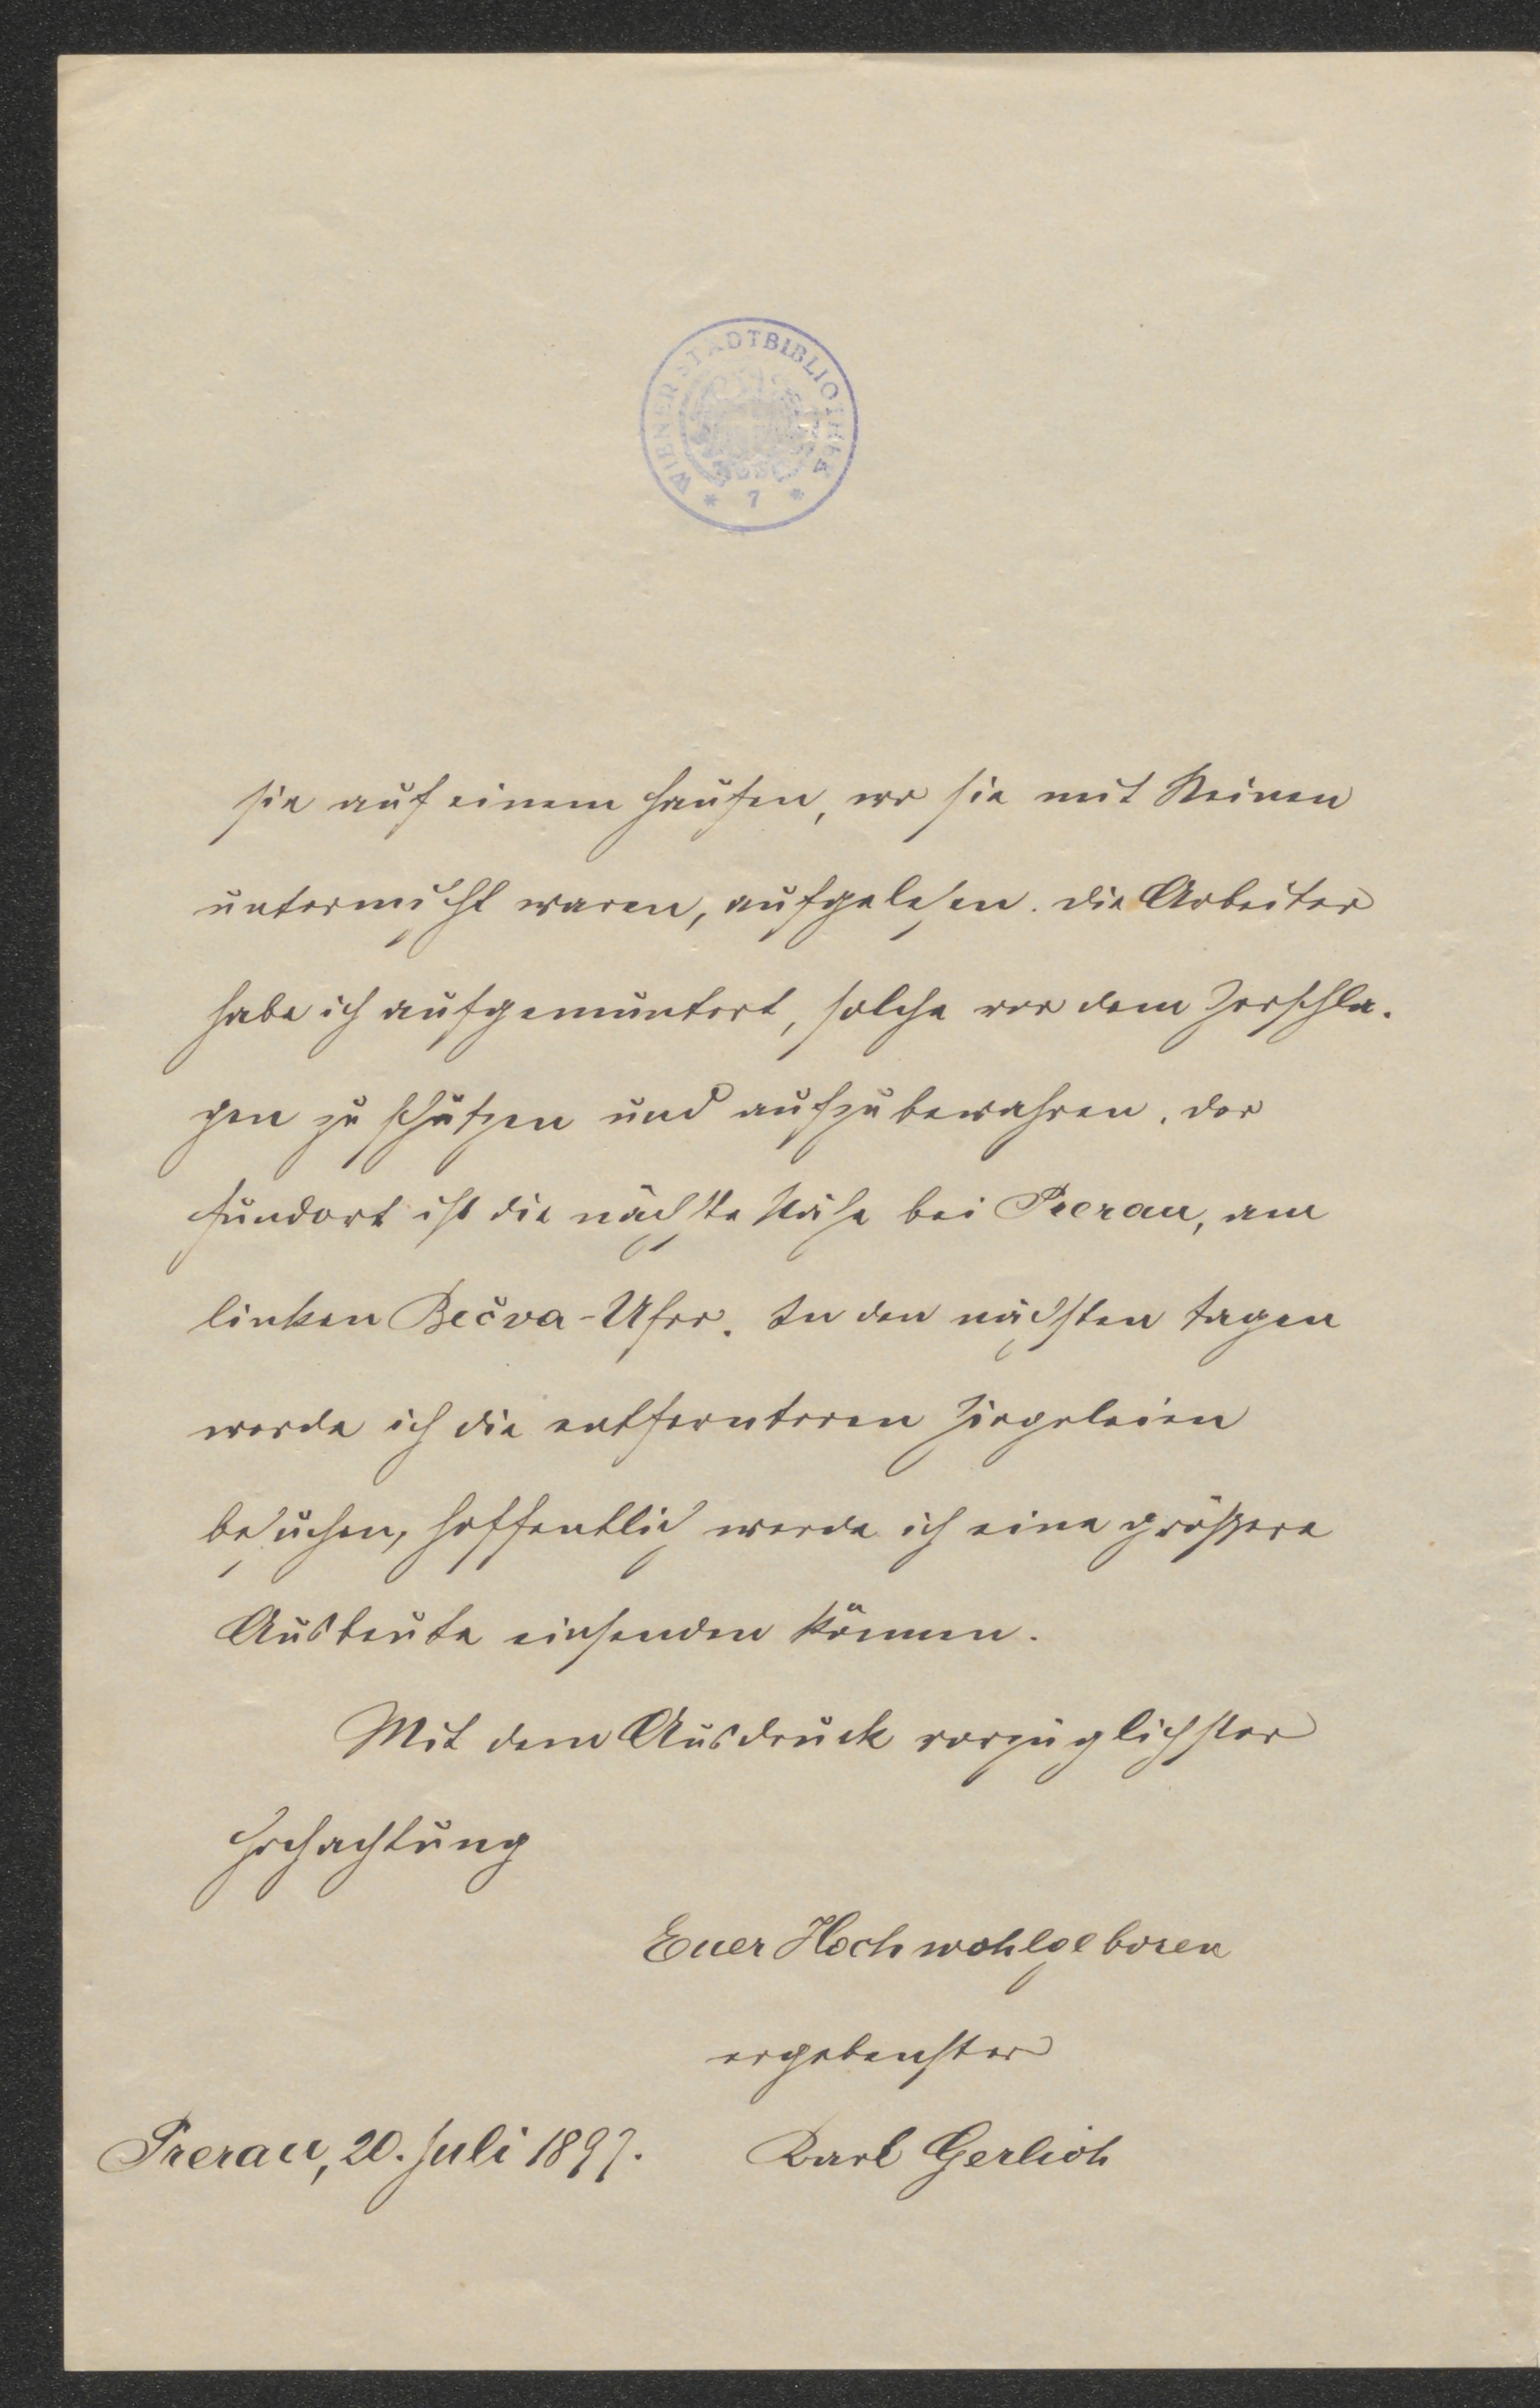 WIENER STADTBIBLIOTHEK
* 7 *
sie auf einem Haufen, wo sie mit Steinen
untermischt waren, aufgelesen. Die Arbeiter
habe ich aufgemuntert, solche vor dem Zerschla-
gen zu schützen und aufzubewahren. Der
Fundort ist die nächste Nähe bei Prerau, am
linken Bečva-Ufer. In den nächsten Tagen
werde ich die entfernteren Ziegeleien
besuchen, hoffentlich werde ich eine größere
Ausbeute einsenden können.
Mit dem Ausdruck vorzüglichster
Hochachtung
Euer Hochwohlgeboren
ergebenster
Prerau, 20. Juli 1897. Karl Gerlich